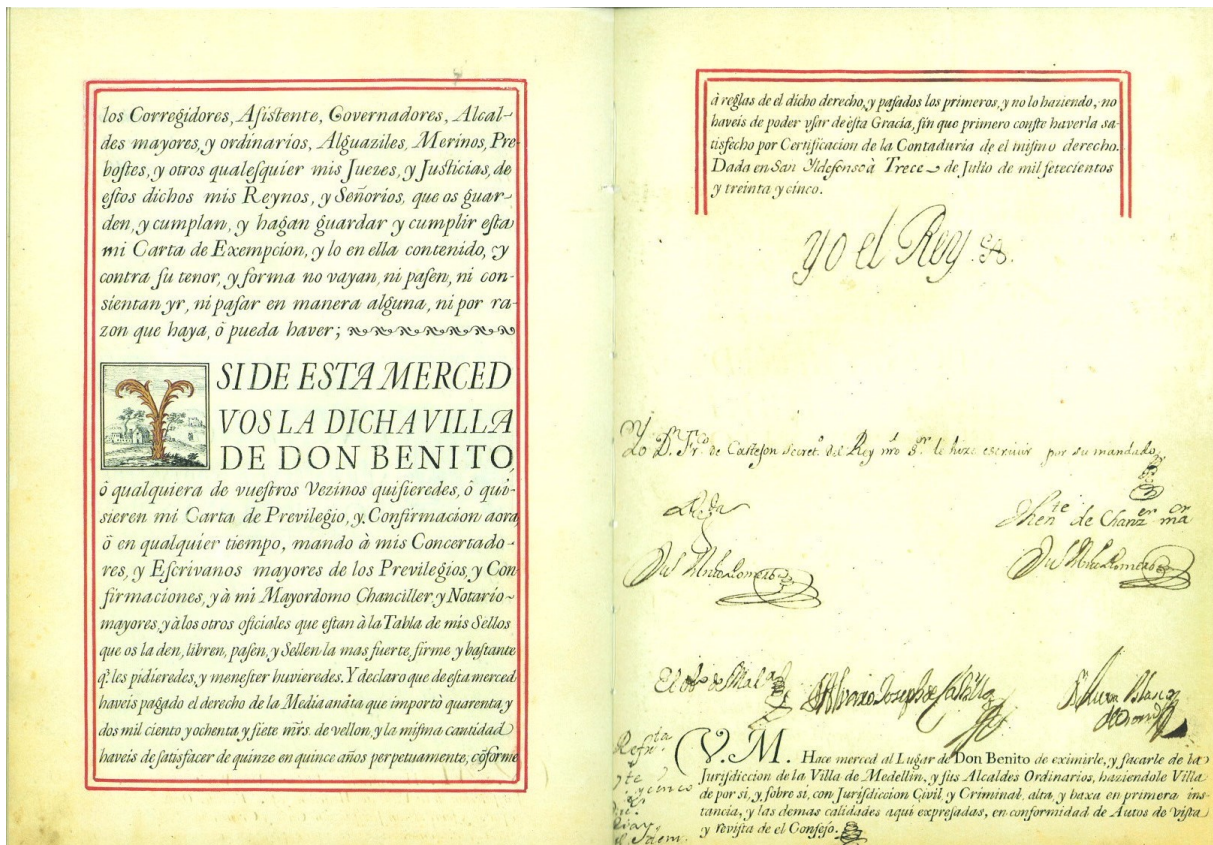 los Corregidores, Aſiſtente, Governadores, Alcal-
des mayores, y ordinarios, Alguaziles, Merinos, Pre-
boſtes, y otros qualeſquier mis Juezes, y Juſticias, de
eſtos dichos mis Reynos, y Señorios, que os guar-
den, y cumplan, y hagan guardar y cumplir eſta
mi Carta de Exempcion, y lo en ella contenido, y
contra ſu tenor, y forma no vayan, ni paſen, ni con-
sientan yr, ni paſar en manera alguna, ni por ra-
zon que haya, ò pueda haver;
Y SI DE ESTA MERCED
VOS LA DICHA VILLA
DE DON BENITO,
ò qualquiera de vueſtros Vezinos quiſieredes, ò qui-
sieren mi Carta de Previlegio, y Confirmacion aora,
ò en qualquier tiempo, mando à mis Concertado-
res, y Eſcrivanos mayores de los Previlegios, y Con
firmaciones, y à mi Mayordomo Chanciller y Notario-
mayores, y à los otros oficiales que eſtan à la Tabla de mis Sellos
que os la den, libren, paſen, y Sellen la mas fuerte, firme y baſtante
q̃. les pidieredes, y meneſter huvieredes. Y declaro que de eſta merced
haveis pagado el derecho de la Media anàta que importò quarenta y
dos mil ciento y ochenta y ſiete mrs. de vellon, y la miſma cantidad
haveis de ſatisfacer de quinze en quinze años perpetuamente, cõforme
à reglas de el dicho derecho, y paſados los primeros, y no lo haziendo, no
haveis de poder vſar de eſta Gracia, ſin que primero conſte haverla sa-
tisfecho por Certificacion de la Contaduria de el miſmo derecho.
Dada en San Yldefonso à Trece de Julio de mil ſetecientos
y treinta y cinco.
yo el Rey
Yo Dn. Frco. de Castejon Secreto. del Rey nro Sr. le hize escriuir por su mandado
Thente de Chanzer mor
El obpo de Mala
V. M. Hace merced al Lugar de Don Benito de eximirle, y ſacarle de la
Jurisdiccion de la Villa de Medellin, y ſus Alcaldes Ordinarios, haziendole Villa
de por si, y ſobre si, con Juriſdiccion Civil y Criminal, alta, y baxa en primera ins-
tancia, y las demas calidades aqui expreſadas, en conformidad de Autos de viſta
y reviſta de el Conſejo.